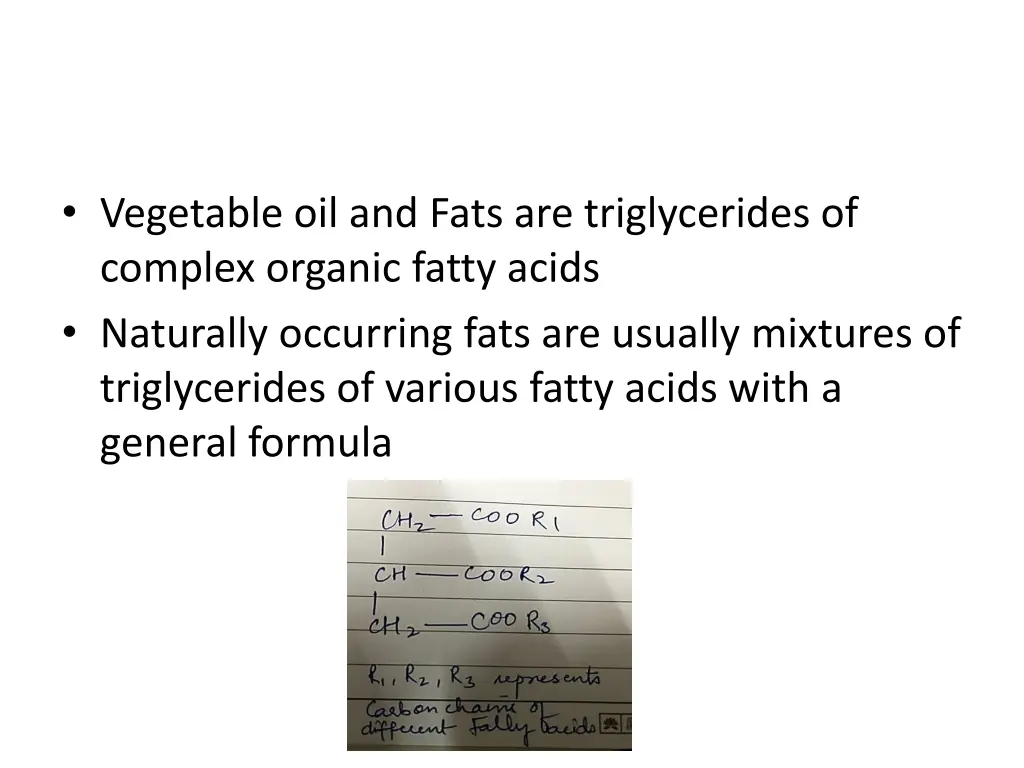 • Vegetable oil and Fats are triglycerides of
complex organic fatty acids
• Naturally occurring fats are usually mixtures of
triglycerides of various fatty acids with a
general formula
CH2 — COO R1
|
CH — COOR2
|
CH2 — COO R3
R1, R2, R3 represents
Carbon chains of
different Fatty acids